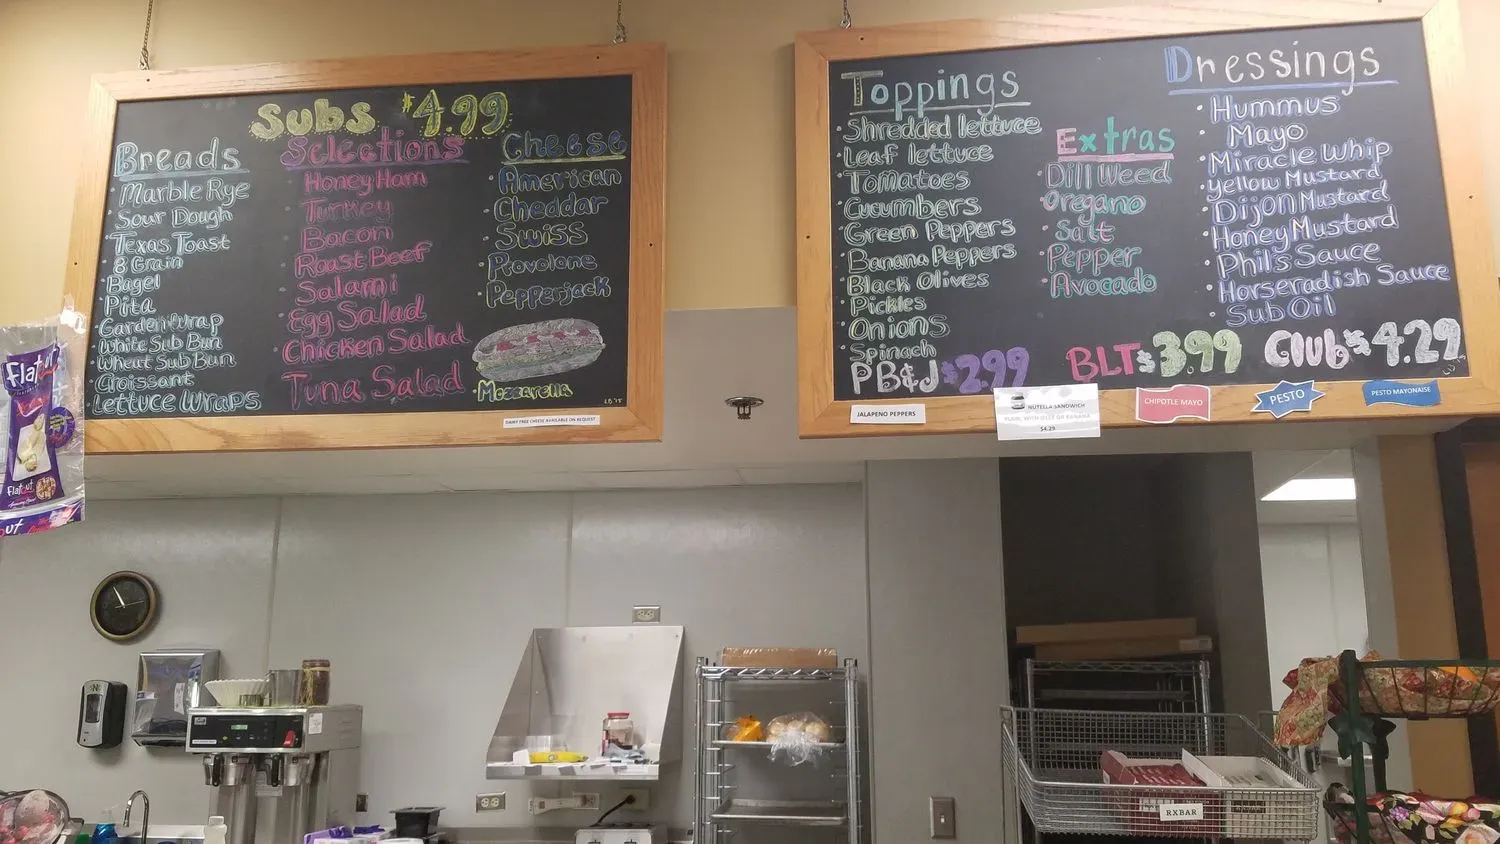 Subs $4.99
Breads
• Marble Rye
• Sour Dough
• Texas Toast
• 8 Grain
• Bagel
• Pita
• Garden Wrap
• White Sub Bun
• Wheat Sub Bun
• Croissant
• Lettuce Wraps
Selections
• Honey Ham
• Turkey
• Bacon
• Roast Beef
• Salami
• Egg Salad
• Chicken Salad
• Tuna Salad
Cheese
• American
• Cheddar
• Swiss
• Provolone
• Pepperjack
• Mozzarella
DAIRY FREE CHEESE AVAILABLE ON REQUEST
Toppings
• Shredded lettuce
• Leaf lettuce
• Tomatoes
• Cucumbers
• Green Peppers
• Banana Peppers
• Black Olives
• Pickles
• Onions
• Spinach
Extras
• Dill Weed
• Oregano
• Salt
• Pepper
• Avocado
Dressings
• Hummus
• Mayo
• Miracle Whip
• Yellow Mustard
• Dijon Mustard
• Honey Mustard
• Phil's Sauce
• Horseradish Sauce
• Sub Oil
PB&J $2.99
BLT $3.99
Club $4.29
JALAPENO PEPPERS
NUTELLA SANDWICH
PLAIN, WITH JELLY OR BANANA
$4.29
CHIPOTLE MAYO
PESTO
PESTO MAYONAISE
Flatout
Flatout
RXBAR